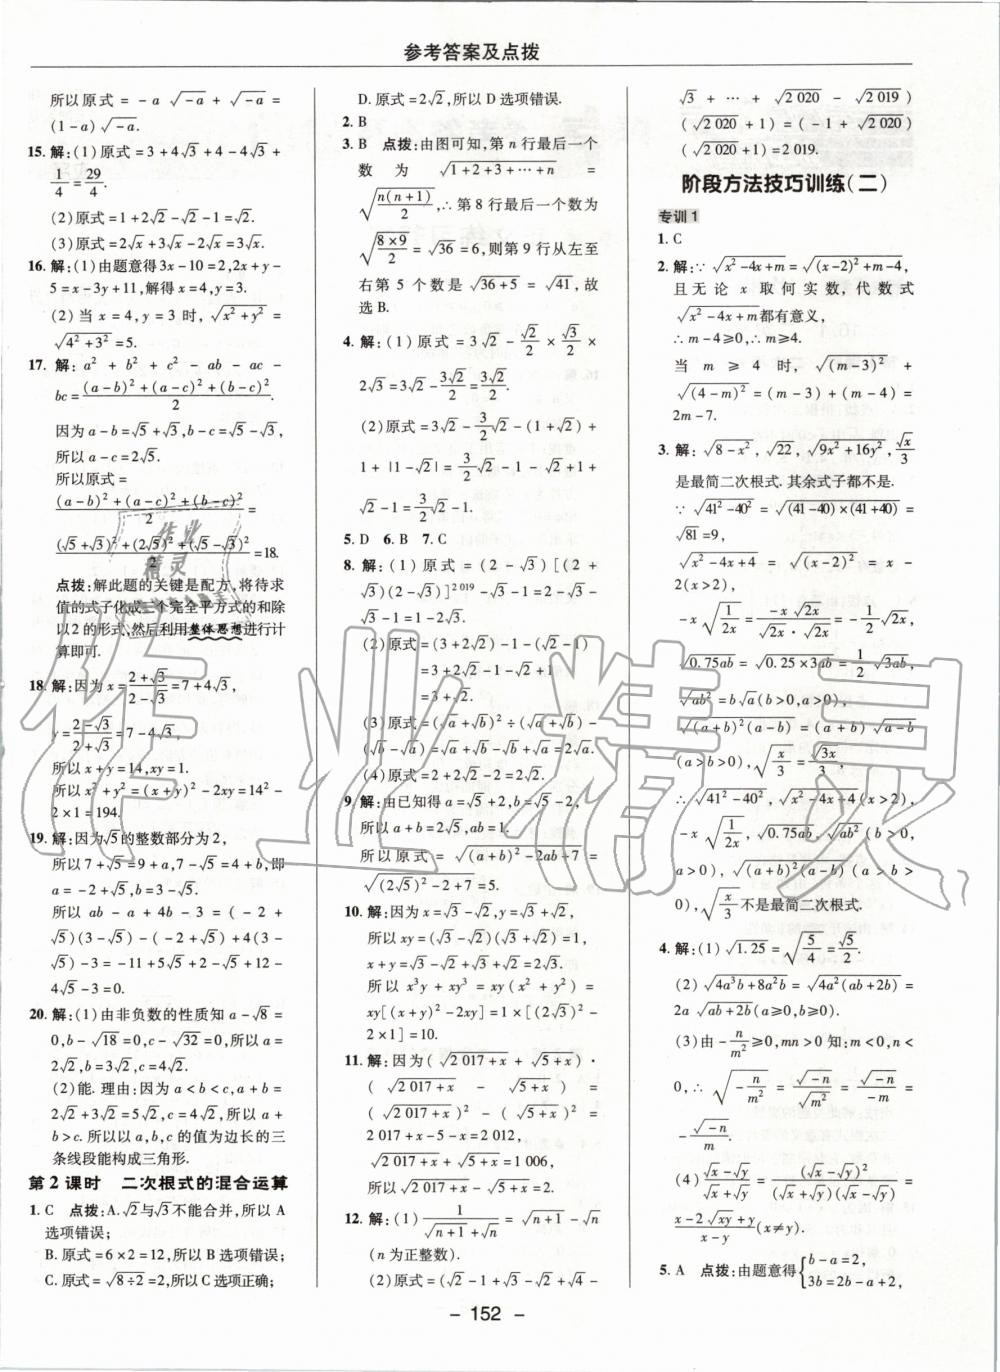 参考答案及点拨
所以原式 = -a √(-a) + √(-a) =
(1-a)√(-a).
15. 解:(1)原式=3+4√3+4-4√3+
1/4=29/4.
(2)原式=1+2√2-√2-1=√2.
(3)原式=2√2+3√2-2√2=3√2.
16. 解:(1)由题意得3x-10=2,2x+y-
5=x-3y+11,解得x=4,y=3.
(2)当 x=4,y=3 时,√(x²+y²)=
√(4²+3²)=5.
17. 解: a² + b² + c² - ab - ac -
bc=((a-b)²+(a-c)²+(b-c)²)/2.
因为a-b=√5+√3,b-c=√5-√3,
所以a-c=2√5.
所以原式=
((a-b)²+(a-c)²+(b-c)²)/2=
((√5+√3)²+(2√5)²+(√5-√3)²)/2=18.
点拨:解此题的关键是配方,将待求
值的式子化成三个完全平方式的和除
以2的形式,然后利用整体思想进行计
算即可.
18. 解:因为x=(2+√3)/(2-√3)=7+4√3,
y=(2-√3)/(2+√3)=7-4√3,
所以x+y=14,xy=1.
所以x²+y²=(x+y)²-2xy=14²-
2×1=194.
19. 解:因为√5的整数部分为2,
所以7+√5=9+a,7-√5=4+b,即
a=-2+√5,b=3-√5.
所以 ab-a+4b-3=(-2+
√5)(3-√5)-(-2+√5)+4(3-
√5)-3=-11+5√5+2-√5+12-
4√5-3=0.
20. 解:(1)由非负数的性质知a-√8=
0,b-√18=0,c-√32=0,所以a=
2√2,b=3√2,c=4√2.
(2)能. 理由:因为a<b<c,a+b=
2√2+3√2=5√2,c=4√2,所以a+
b>c. 所以以a,b,c的值为边长的三
条线段能构成三角形.
第2课时 二次根式的混合运算
1. C 点拨:A.√2与√3不能合并,所以A
选项错误;
B. 原式=6×2=12,所以B选项错误;
C. 原式=√(8÷2)=2,所以C选项正确;
D. 原式=2√2,所以D选项错误.
2. B
3. B 点拨:由图可知,第n行最后一个
数为 √(1+2+3+⋯+n) =
√(n(n+1)/2),∴第8行最后一个数为
√(8×9/2)=√36=6,则第9行从左至
右第5个数是√(36+5)=√41,故
选B.
4. 解:(1)原式=3√2-√2/2×√3/2×
2√3=3√2-3√2/2=3√2/2.
(2)原式=3√2-3/2√2-(1+√2)+
1+|1-√2|=3/2√2-1-√2+1+
√2-1=3/2√2-1.
5. D 6. B 7. C
8. 解:(1)原式=(2-√3)[(2+
√3)(2-√3)]²⁰¹⁹-√3-1=2-
√3-√3-1=1-2√3.
(2)原式=(3+2√2-1)-(√2-1)
=3+2√2-1-√2+1
=3+√2.
(3)原式=(√a+√b)²÷(√a+√b)-
(√b-√a)=√a+√b-√b+√a=2√a.
(4)原式=2+2√2-2√2=4.
9. 解:由已知得a=√5+2,b=√5-2,
所以a+b=2√5,ab=1.
所以原式=√((a+b)²-2ab+7)=
√((2√5)²-2+7)=5.
10. 解:因为x=√3-√2,y=√3+√2,
所以xy=(√3-√2)(√3+√2)=1,
x+y=√3-√2+√3+√2=2√3.
所以 x³y+xy³=xy(x²+y²)=
xy[(x+y)²-2xy]=1×[(2√3)²-
2×1]=10.
11. 解:因为(√(2 017+x)+√(5+x))·
(√(2 017+x)-√(5+x))=
(√(2 017+x))²-(√(5+x))²=
2 017+x-5-x=2 012,
√(2 017+x)+√(5+x)=1 006,
所以√(2 017+x)-√(5+x)=2.
12. 解:(1)1/(√(n+1)+√n)=√(n+1)-√n
(n为正整数).
(2)原式=(√2-1+√3-√2+√4-
√3+⋯+√2 020-√2 019)
(√2 020+1)=(-1+√2 020)
(√2 020+1)=2 019.
阶段方法技巧训练(二)
专训1
1. C
2. 解:∵√(x²-4x+m)=√((x-2)²+m-4),
且无论 x 取何实数,代数式
√(x²-4x+m)都有意义,
∴m-4≥0,∴m≥4.
当 m≥4 时,√((m-3)²)+
√((4-m)²)=(m-3)+(m-4)=
2m-7.
3. 解:√(8-x²),√22,√(9x²+16y²),√x/3
是最简二次根式. 其余式子都不是.
∵√(41²-40²)=√((41-40)×(41+40))=
√81=9,
√(x²-4x+4)=√((x-2)²)=x-
2(x>2),
-x√(1/2x)=(-x√2x)/(√2x·√2x)=-√2x/2,
√0.75ab=√(0.25×3ab)=1/2√3ab,
√ab²=b√a(b>0,a>0),
√((a+b)²(a-b))=(a+b)√(a-b)
(a>b>0),√(x/3)=√3x/3,
∴√(41²-40²),√(x²-4x+4)(x>2),
-x√(1/2x),√0.75ab,√ab²(b>0,
a>0),√((a+b)²(a-b))(a>b>
0),√(x/3)不是最简二次根式.
4. 解:(1)√1.25=√(5/4)=√5/2.
(2)√(4a³b+8a²b)=√(4a²(ab+2b))=
2a√(ab+2b)(a≥0,b≥0).
(3)由-n/m²≥0,mn>0知:m<0,n<
0,∴√(-n/m²)=√(-n)/√m²=√(-n)/(-m)=
-√(-n)/m.
(4)(√x-√y)/(√x+√y)=(√x-√y)²/((√x+√y)(√x-√y))=
(x-2√xy+y)/(x-y)(x≠y).
5. A 点拨:由题意得{b-a=2,
3b=2b-a+2,
- 152 -
作业精灵
作业
精灵